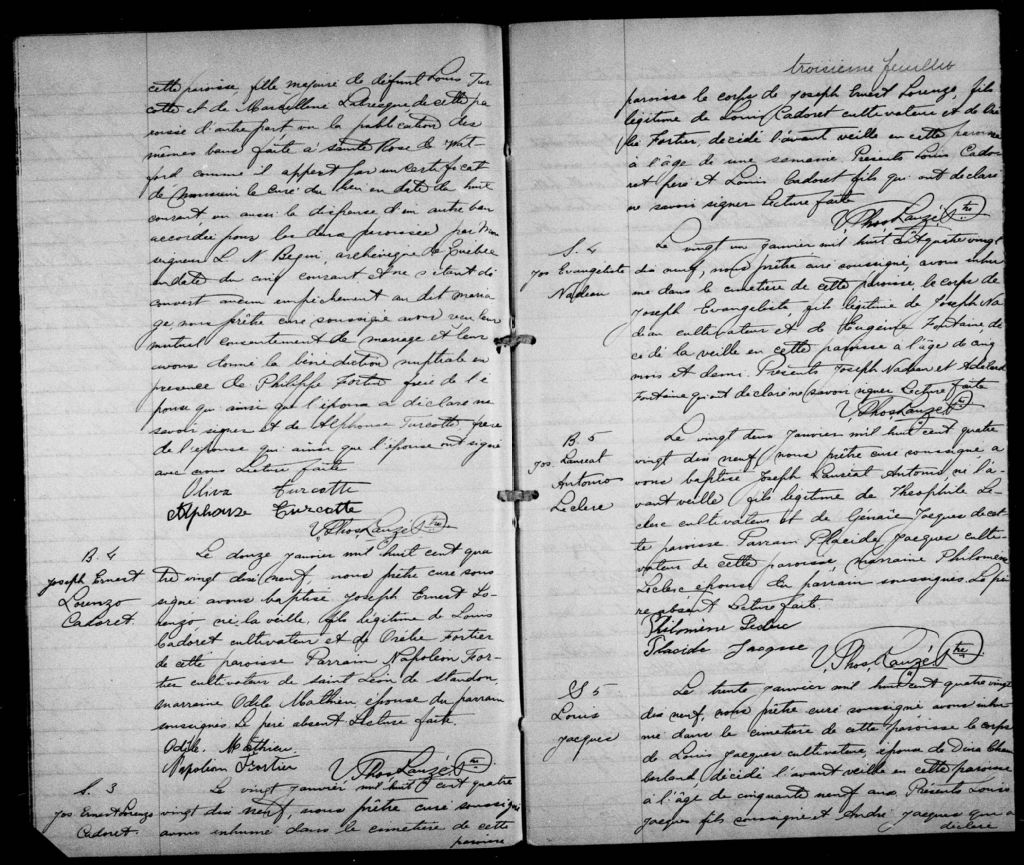 cette paroisse, fille majeure de défunt Louis Tur
cotte et de Marcelline Labrecque de cette pa
roisse d'autre part vu la publication des
mêmes bans faite à sainte Rose de Wat
ford comme il appert par un certificat
de Monsieur le Curé du lieu en date du huit
courant vu aussi la dispense d'un autre ban
accordée pour les deux paroisses par Mon
seigneur L. N. Bégin, archevêque de Québec
en date du cinq courant et ne s'étant dé
couvert aucun empêchement au dit maria
ge, nous prêtre curé soussigné avons reçu leur
mutuel consentement de mariage et leur
avons donné la bénédiction nuptiale en
présence de Philippe Fortier frère de l'é
poux qui ainsi que l'époux a déclaré ne
savoir signer et de Alphonse Turcotte, frère
de l'épouse qui ainsi que l'épouse ont signé
avec nous Lecture faite
Oliva Turcotte
Alphonse Turcotte
V. Phos Lauzé Ptre
B. 4
Joseph Ernest
Lorenzo
Cadoret.
Le douze janvier mil huit cent qua
tre vingt dix neuf, nous prêtre curé sous
signé avons baptisé Joseph Ernest Lo-
renzo né la veille, fils légitime de Louis
Cadoret cultivateur et de Orélie Fortier
de cette paroisse Parrain Napoléon For-
tier cultivateur de saint Léon de Standon,
marraine Odile Mathieu, épouse du parrain
soussignés. Le père absent Lecture faite.
Odile. Mathieu.
Napoléon Fortier
V. Phos Lauzé Ptre
S. 3
Jos Ernest Lorenzo
Cadoret.
Le vingt janvier mil huit cent quatre
vingt dix neuf, nous prêtre curé soussigné
avons inhumé dans le cimetière de cette
paroisse
troisième feuillet
paroisse le corps de Joseph Ernest Lorenzo, fils
légitime de Louis Cadoret cultivateur et de Oré
lie Fortier, décédé l'avant veille en cette paroisse
à l'âge de une semaine Présents Louis Cado
ret père et Louis Cadoret fils qui ont déclaré
ne savoir signer Lecture faite
V. Phos Lauzé Ptre
S. 4
Jos Evangeliste
Nadeau
Le vingt un janvier mil huit cent quatre vingt
dix neuf, nous prêtre curé soussigné, avons inhu
mé dans le cimetière de cette paroisse, le corps de
Joseph Evangeliste, fils légitime de Joseph Na
deau cultivateur et de Eugénie Fontaine dé
cédé la veille en cette paroisse à l'âge de cinq
mois et demi. Présents Joseph Nadeau et Adélard
Fontaine qui ont déclaré ne savoir signer Lecture faite
V. Phos Lauzé Ptre
B. 5
Jos. Lauréat
Antonio
Leclerc
Le vingt deux janvier mil huit cent quatre
vingt dix neuf, nous prêtre curé soussigné a
vons baptisé Joseph Lauréat Antonio, né l'a
vant veille fils légitime de Théophile Le-
clerc cultivateur et de Génaïe Jacques de cet
te paroisse Parrain Placide Jacques culti-
vateur de cette paroisse, marraine Philomène
Leclerc épouse du parrain soussignés. Le pè
re absent Lecture faite.
Philomène Leclerc
Placide Jacques
V. Phos Lauzé Ptre
S 5
Louis
Jacques
Le trente janvier mil huit cent quatre vingt
dix neuf, nous prêtre curé soussigné avons inhu
mé dans le cimetière de cette paroisse le corps
de Louis Jacques cultivateur, époux de Dina Cham
berland, décédé l'avant veille en cette paroisse
à l'âge de cinquante neuf ans Présents Louis
Jacques fils soussigné et André Jacques qui a
déclaré